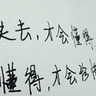 失去,才会懂得
懂得,才会